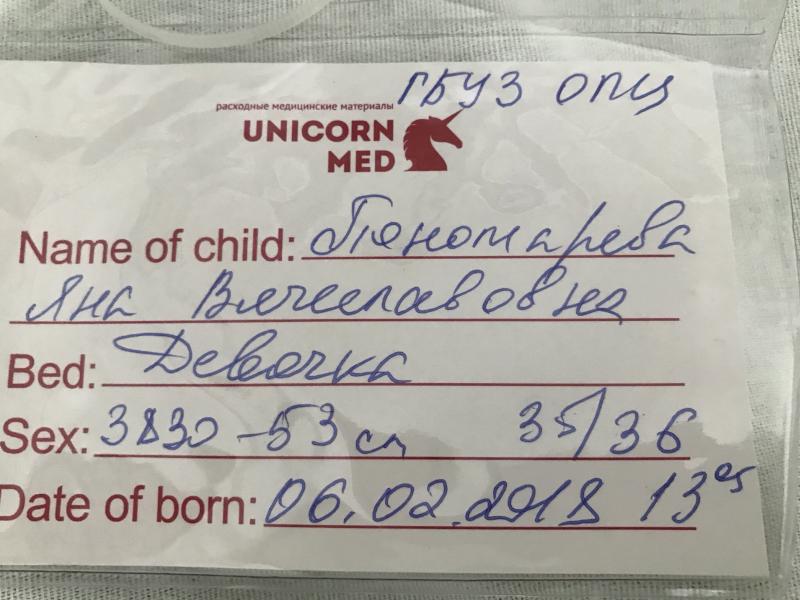 ГБУЗ ОПЦ
расходные медицинские материалы
UNICORN
MED
Name of child: Пономарева
Яна Вячеславовна
Bed: Девочка
Sex: 3830 - 53 см 35/36
Date of born: 06.02.2018 13⁰⁵